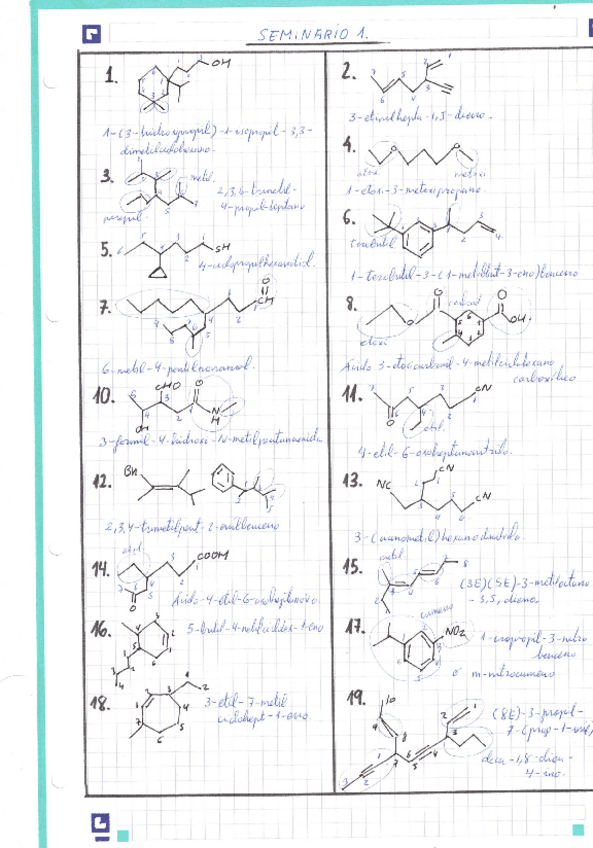 SEMINARIO 1.
1.
OH
1-(3-hidroxipropil)-1-isopropil-3,3-
dimetilciclohexano.
2.
3-etinilhepta-1,5-dieno.
3.
metil
propil
2,3,6-trimetil-
4-propilheptano
4.
etoxi
metoxi
1-etoxi-3-metoxipropano
5.
SH
4-ciclopropilhexanotiol.
6.
tercbutil
1-tercbutil-3-(1-metilbut-3-eno)benceno
7.
O
CH
6-metil-4-pentilnonanal.
8.
O
O
OH.
etoxi
Ácido 3-etoxicarbonil-4-metilciclohexano
carboxílico
10.
CHO
O
N
H
OH
3-formil-4-hidroxi-N-metilpentanamida
11.
CN
O
etil.
4-etil-6-oxoheptanonitrilo.
12.
2,3,4-trimetilpent-2-enilbenceno
13.
NC
CN
CN
3-(cianometil)hexanodinitrilo
14.
etil
COOH
O
Ácido-4-etil-6-oxoheptanoico.
15.
metil
(3E)(5E)-3-metiloctano
-3,5, dieno.
16.
5-butil-4-metilciclohex-1-eno
17.
cumeno
NO2
1-isopropil-3-nitro
benceno
o m-nitrocumeno
18.
3-etil-7-metil
ciclohept-1-eno
19.
(8E)-3-propil-
7-(prop-1-inil)
deca-1,8-dien-
4-ino.